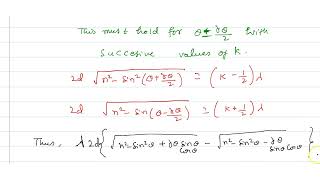 This must hold for θ ± δθ/2 with
succesive values of k.
2d √(n² - sin²(θ + δθ/2)) = (k - 1/2) λ
2d √(n² - sin(θ - δθ/2)) = (k + 1/2) λ
Thus, λ 2d{√(n² - sin²θ + δθ sinθ cosθ) - √(n² - sin²θ - δθ sinθ cosθ)